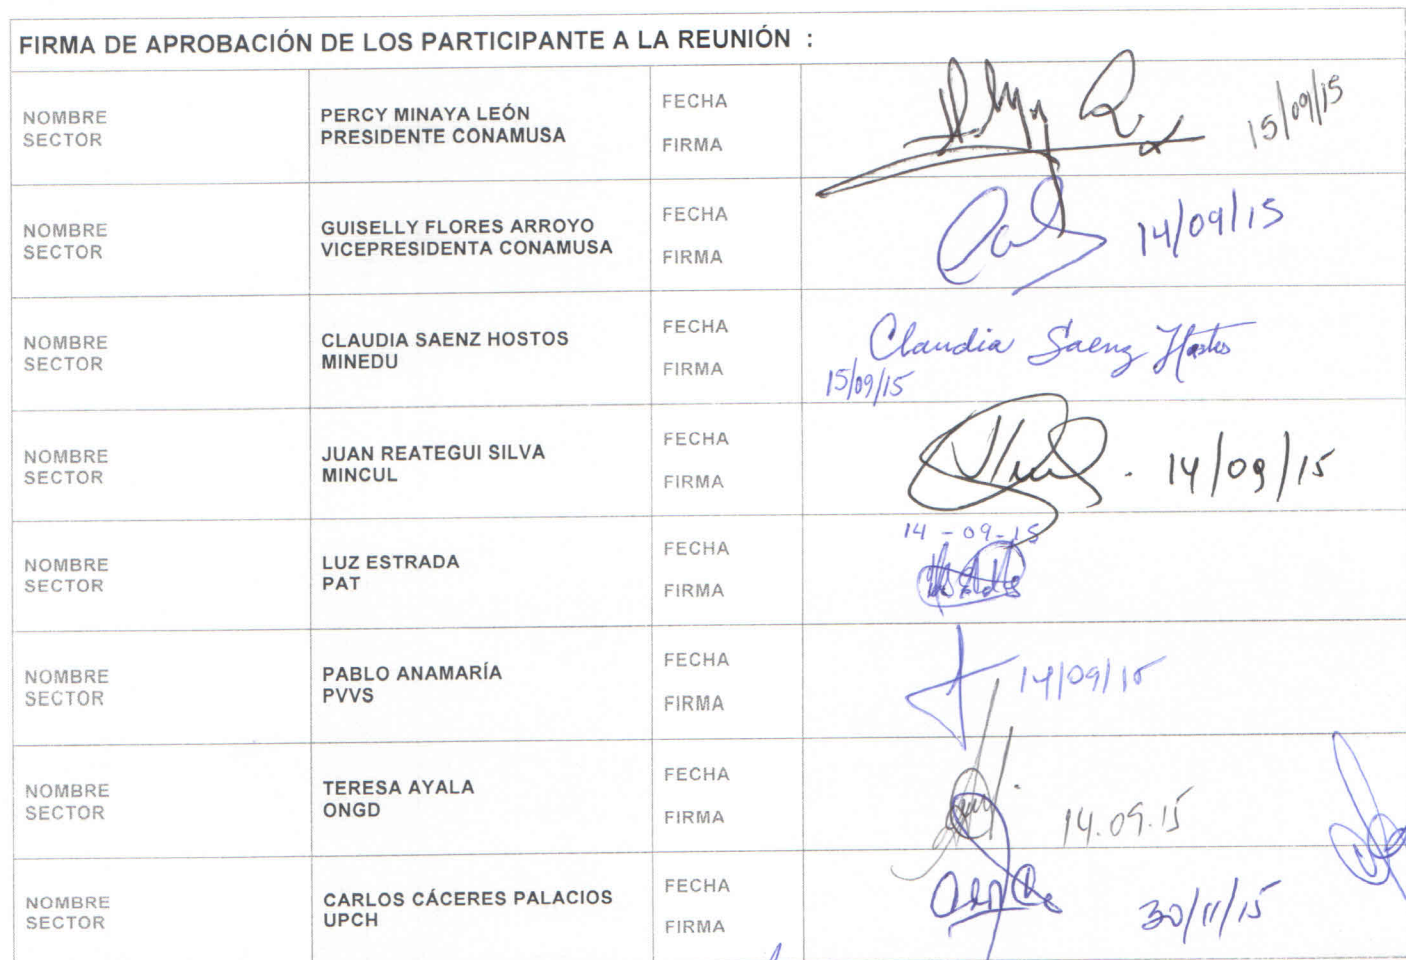 FIRMA DE APROBACIÓN DE LOS PARTICIPANTE A LA REUNIÓN :
NOMBRE
SECTOR
PERCY MINAYA LEÓN
PRESIDENTE CONAMUSA
FECHA
FIRMA
15/09/15
NOMBRE
SECTOR
GUISELLY FLORES ARROYO
VICEPRESIDENTA CONAMUSA
FECHA
FIRMA
14/09/15
NOMBRE
SECTOR
CLAUDIA SAENZ HOSTOS
MINEDU
FECHA
FIRMA
Claudia Saenz Hostos
15/09/15
NOMBRE
SECTOR
JUAN REATEGUI SILVA
MINCUL
FECHA
FIRMA
14/09/15
NOMBRE
SECTOR
LUZ ESTRADA
PAT
FECHA
FIRMA
14-09-15
NOMBRE
SECTOR
PABLO ANAMARÍA
PVVS
FECHA
FIRMA
14/09/15
NOMBRE
SECTOR
TERESA AYALA
ONGD
FECHA
FIRMA
14.09.15
NOMBRE
SECTOR
CARLOS CÁCERES PALACIOS
UPCH
FECHA
FIRMA
30/11/15